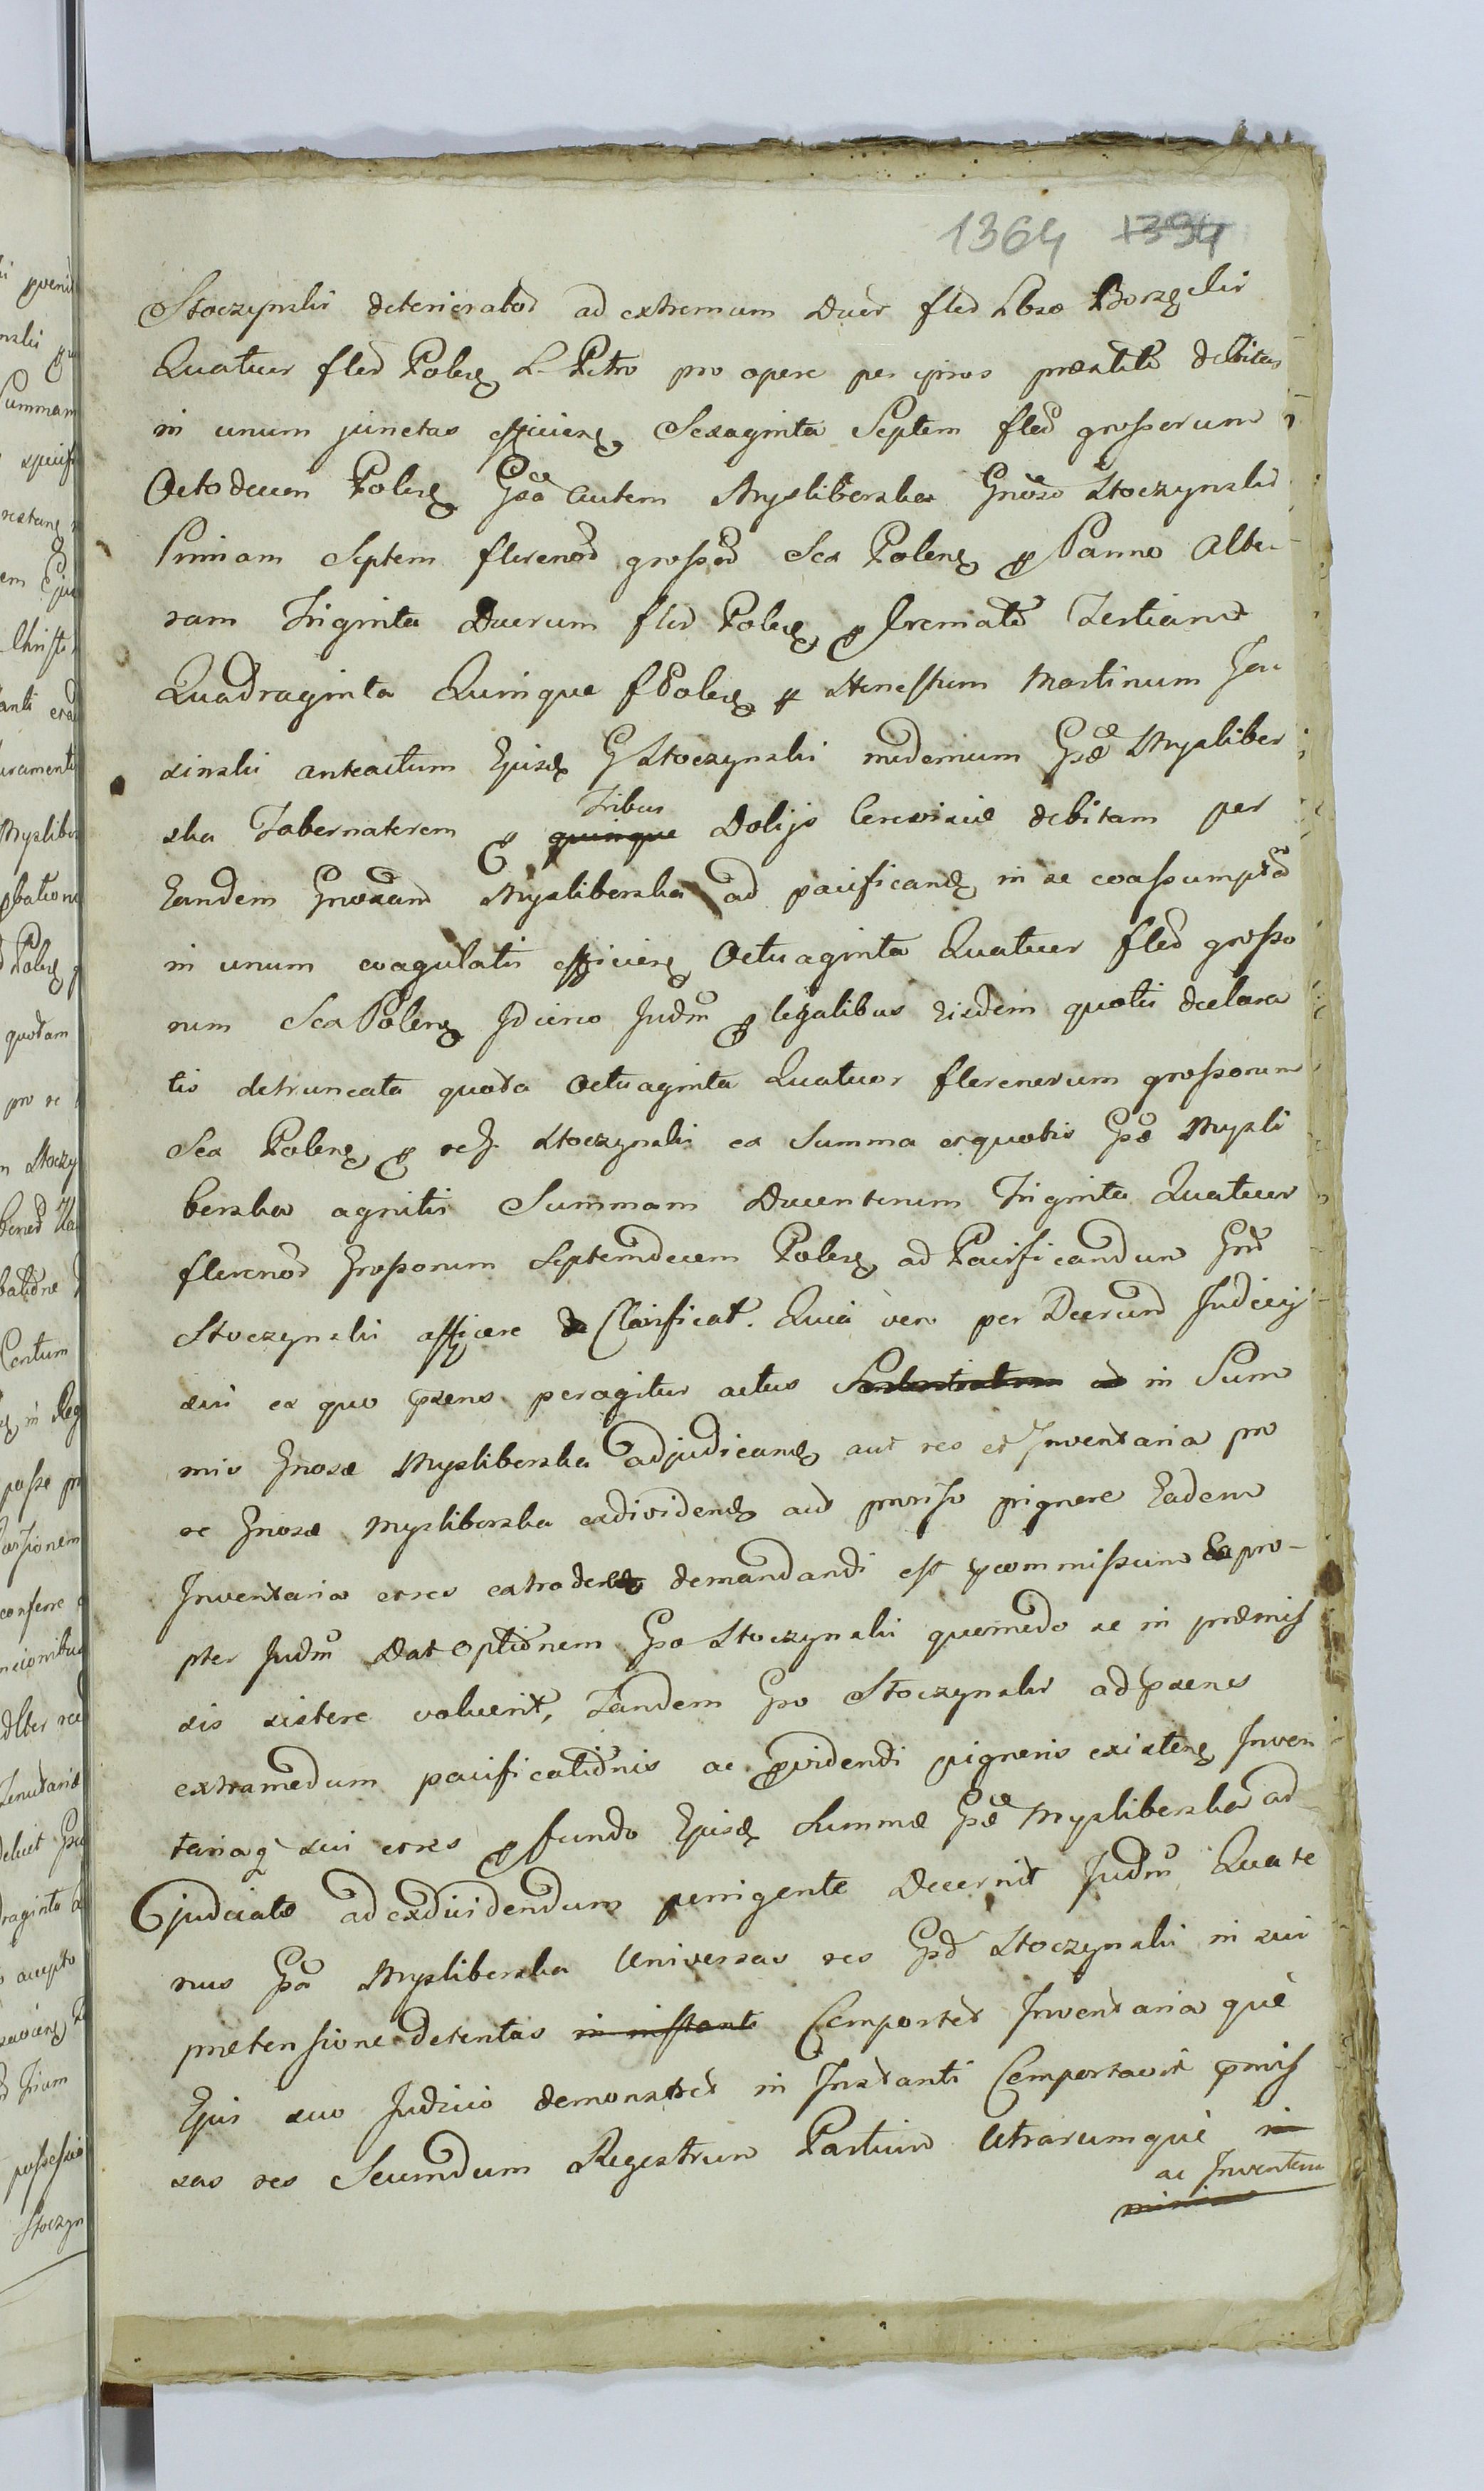 1364 1394
Stoczynski deterioratos ad extremum Duos flos Lbro Borzęcki
Quatuor flos Polles L. Petro pro opere per ipsos praestito debitas
in unum junctas efficiens Sexaginta Septem flos grossorum
Octodecem Polles Gsa autem Mysliborska Gnoso Stoczynski
Primam Septem florenos grossos Sex Polens p Panno Alte-
ram Triginta Duorum flos Poles p Cremato Tertiam
Quadraginta Quinque f Poles p Honestum Martinum Jan
sinski anteactum Ejusd G Stoczynski modernum Gsae Mysliber
ska Tabernatorem p quinque Tribus Dolijs Cerevisiae debitam per
Eandem Gnosam Mysliborska ad pacificand in se coassumptas
in unum coagulatis efficiens Octuaginta Quatuor flos grosso
rum Sex Polens Idcirco Judm p legalibus eisdem quotis declara
tis detruncata quota octuaginta Quatuor florenorum grossorum
Sex Polens p rel Stoczynski ex Summa et quotis Gsae Mysli
borska agnitis Summam Ducentorum Triginta Quatuor
florenos Grossorum Septemdecem Poles ad Pacificandum Gnd
Stoczynski afficere Clarificat. Quia vero per Decretum Judicij
sui ex quo psens peragitur actus ad in Sum
mis Gnosae Mysliborska adjudicand aut res et Inventaria pro
se Gnosae Mysliborska exdividend aut proviso pignore Eadem
Inventaria et res extradend demandandi est pcommissum Eapro-
pter Judm Dat Optionem Gso Stoczynski quomodo se in praemis
sis sistere voluerit, Tandem Gso Stoczynski ad psens
extramodum pacificationis ac pvidendi pignoris existens Inven
tariaq sui et res p fundo Ejusd Summae Gsae Mysliborska ad
judicatae ad exdividendum porrigente Decernit Judm Quate
nus Gsa Mysliborska Universas res Gsd Stoczynski in sui
praetensione detentas in instanti Comportet Inventaria que
Ejus suo Judicio demonstret in Instanti Comportavit pmis
sas res Secundum Regestrum Partium Utrarumque in
ac Inventa